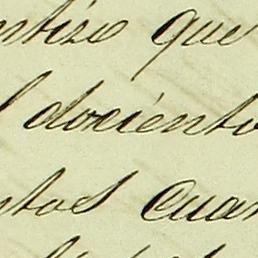 ntizo que
l dociento
ntos cuar